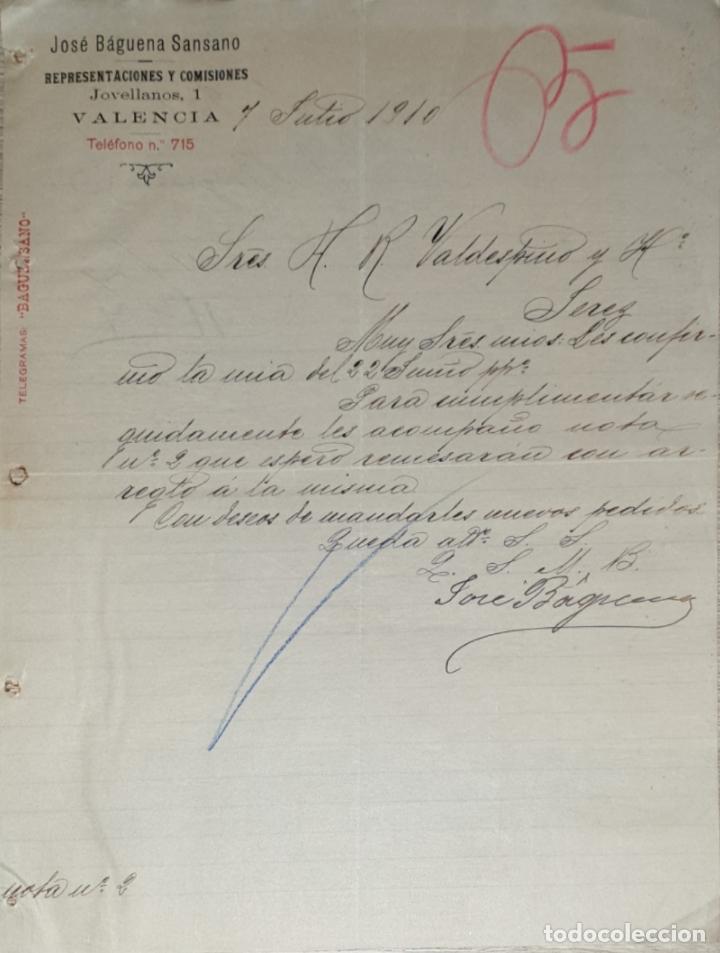 José Báguena Sansano
REPRESENTACIONES Y COMISIONES
Jovellanos, 1
VALENCIA 7 Julio 1910
Teléfono n.º 715
TELEGRAMAS: "BAGUENSANO"
Sres. H. R. Valdespino y Hº
Jerez
Muy Sres. mios: Les confir-
mo la mia del 22 Junio ppº
Para cumplimentár se-
guidamente les acompaño nota
nº 2 que espero remesarán con ar-
reglo á la misma
Con deseos de mandarles nuevos pedidos
Queda attº S. S.
Q. S. M. B.
José Báguena
nota nº 2
todocoleccion